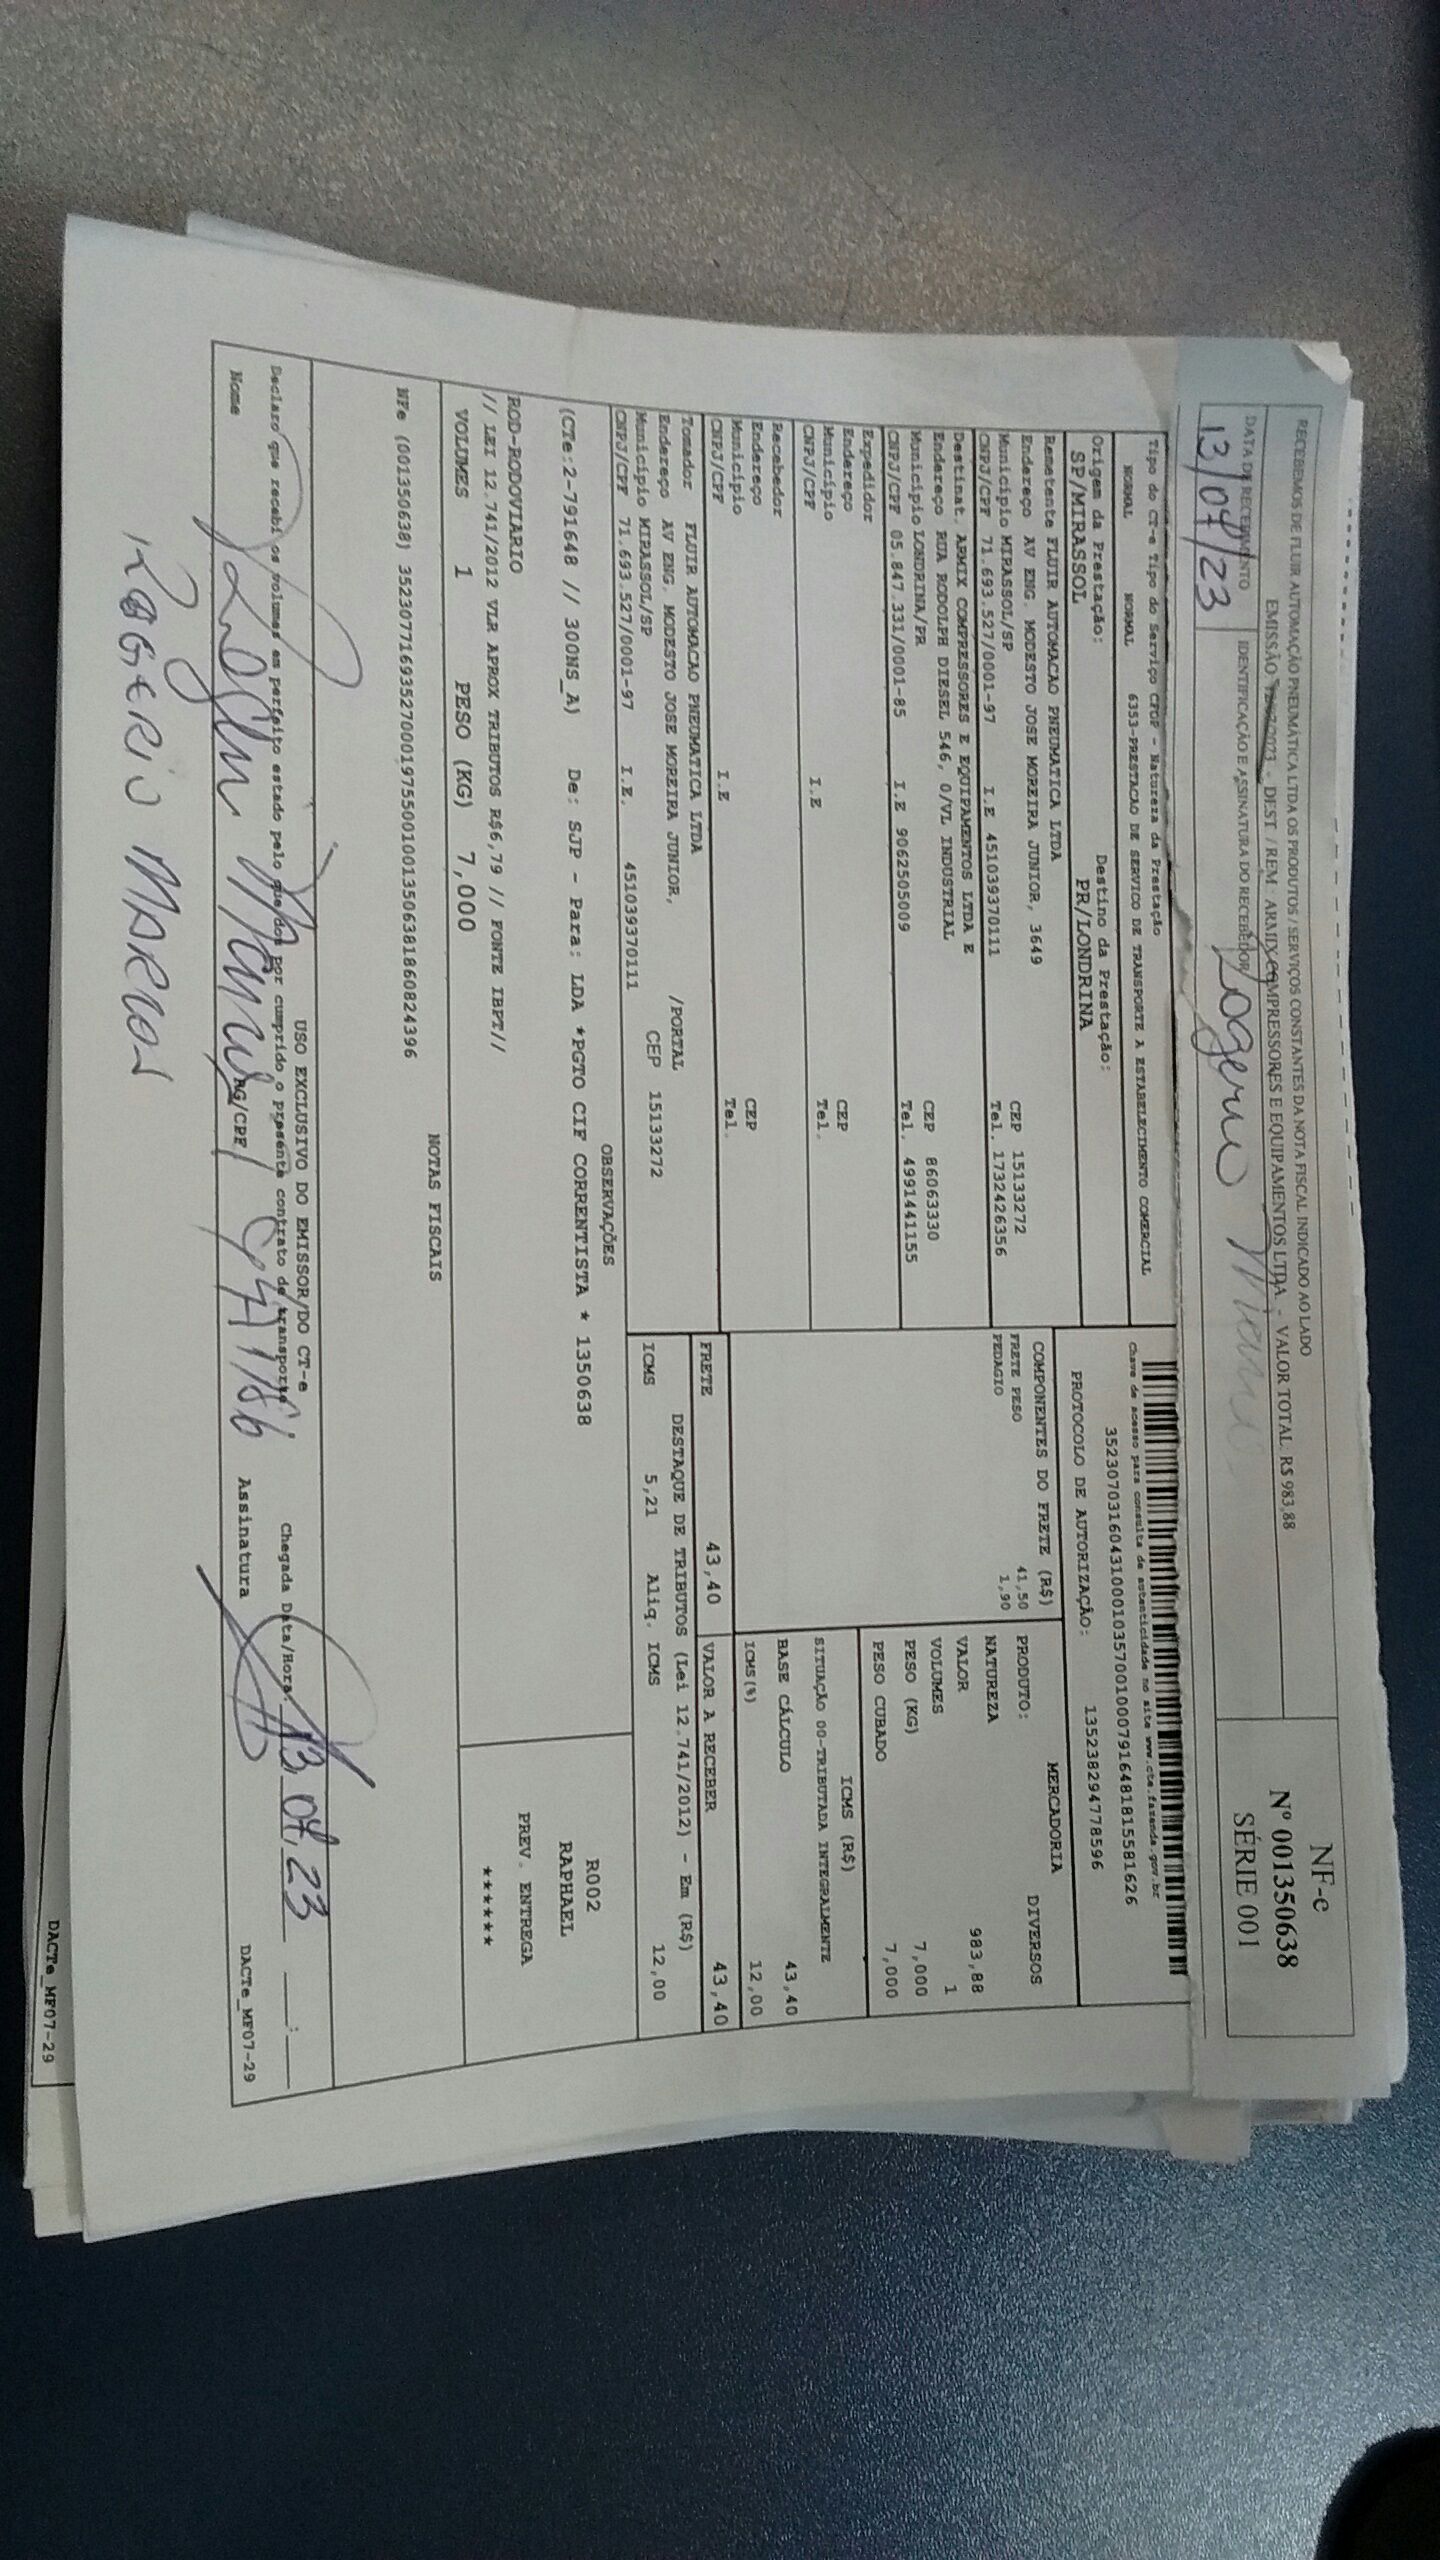 RECEBEMOS DE FLUIR AUTOMAÇÃO PNEUMÁTICA LTDA OS PRODUTOS / SERVIÇOS CONSTANTES DA NOTA FISCAL INDICADO AO LADO
EMISSÃO - DEST / REM: ARMIX COMPRESSORES E EQUIPAMENTOS LTDA - VALOR TOTAL: R$ 983,88
DATA DE RECEBIMENTO IDENTIFICAÇÃO E ASSINATURA DO RECEBEDOR
13/07/23 Rogerio
NF-e
Nº 001350638
SÉRIE 001
Tipo do CT-e Tipo do Serviço CFOP - Natureza da Prestação
NORMAL NORMAL 6353-PRESTACAO DE SERVICO DE TRANSPORTE A ESTABELECIMENTO COMERCIAL
Origem da Prestação: Destino da Prestação:
SP/MIRASSOL PR/LONDRINA
Remetente FLUIR AUTOMACAO PNEUMATICA LTDA
Endereço AV ENG. MODESTO JOSE MOREIRA JUNIOR, 3649 CEP 15133272
Município MIRASOL/SP Tel. 1732426356
CNPJ/CPF 71.693.527/0001-97 I.E 451039370111
Destinat. ARMIX COMPRESSORES E EQUIPAMENTOS LTDA E
Endereço RUA RODOLPH DIESEL 546, 0/VL INDUSTRIAL CEP 86063330
Município LONDRINA/PR Tel. 4991441155
CNPJ/CPF 05.847.331/0001-85 I.E 9062505009
Expedidor
Endereço CEP
Município Tel.
CNPJ/CPF I.E
Recebedor
Endereço CEP
Município Tel.
CNPJ/CPF I.E
Tomador FLUIR AUTOMACAO PNEUMATICA LTDA
Endereço AV ENG. MODESTO JOSE MOREIRA JUNIOR, /PORTAL
Município MIRASSOL/SP CEP 15133272
CNPJ/CPF 71.693.527/0001-97 I.E. 451039370111
Chave de acesso para consulta de autenticidade no site www.cte.fazenda.gov.br
35230703160431000103570010007916481815581626
PROTOCOLO DE AUTORIZAÇÃO: 135238294778596
COMPONENTES DO FRETE (R$)
FRETE PESO 41,50
PEDAGIO 1,90
MERCADORIA
PRODUTO: DIVERSOS
NATUREZA
VALOR 983,88
VOLUMES 1
PESO (KG) 7,000
PESO CUBADO 7,000
ICMS (R$)
SITUAÇÃO 00-TRIBUTADA INTEGRALMENTE
BASE CÁLCULO 43,40
ICMS(%) 12,00
FRETE 43,40 VALOR A RECEBER 43,40
DESTAQUE DE TRIBUTOS (Lei 12.741/2012) - Em (R$)
ICMS 5,21 Aliq. ICMS 12,00
OBSERVAÇÕES
(CTe:2-791648 // 300NS_A) De: SJP - Para: LDA *PGTO CIF CORRENTISTA * 1350638
ROD-RODOVIARIO
// LEI 12.741/2012 VLR APROX TRIBUTOS R$6,79 // FONTE IBPT//
R002
RAPHAEL
PREV. ENTREGA
*******
VOLUMES 1 PESO (KG) 7,000
NOTAS FISCAIS
NFe (001350638) 35230771693527000197550010013506381860824396
USO EXCLUSIVO DO EMISSOR/DO CT-e
Declaro que recebi os volumes em perfeito estado pelo que dou por cumprido o presente contrato de transporte
Chegada Data/Hora: 13 07, 23 __:__
Nome RG/CPF Assinatura DACTe_MF07-29
ROGERIO MARCOS
DACTe_MF07-29